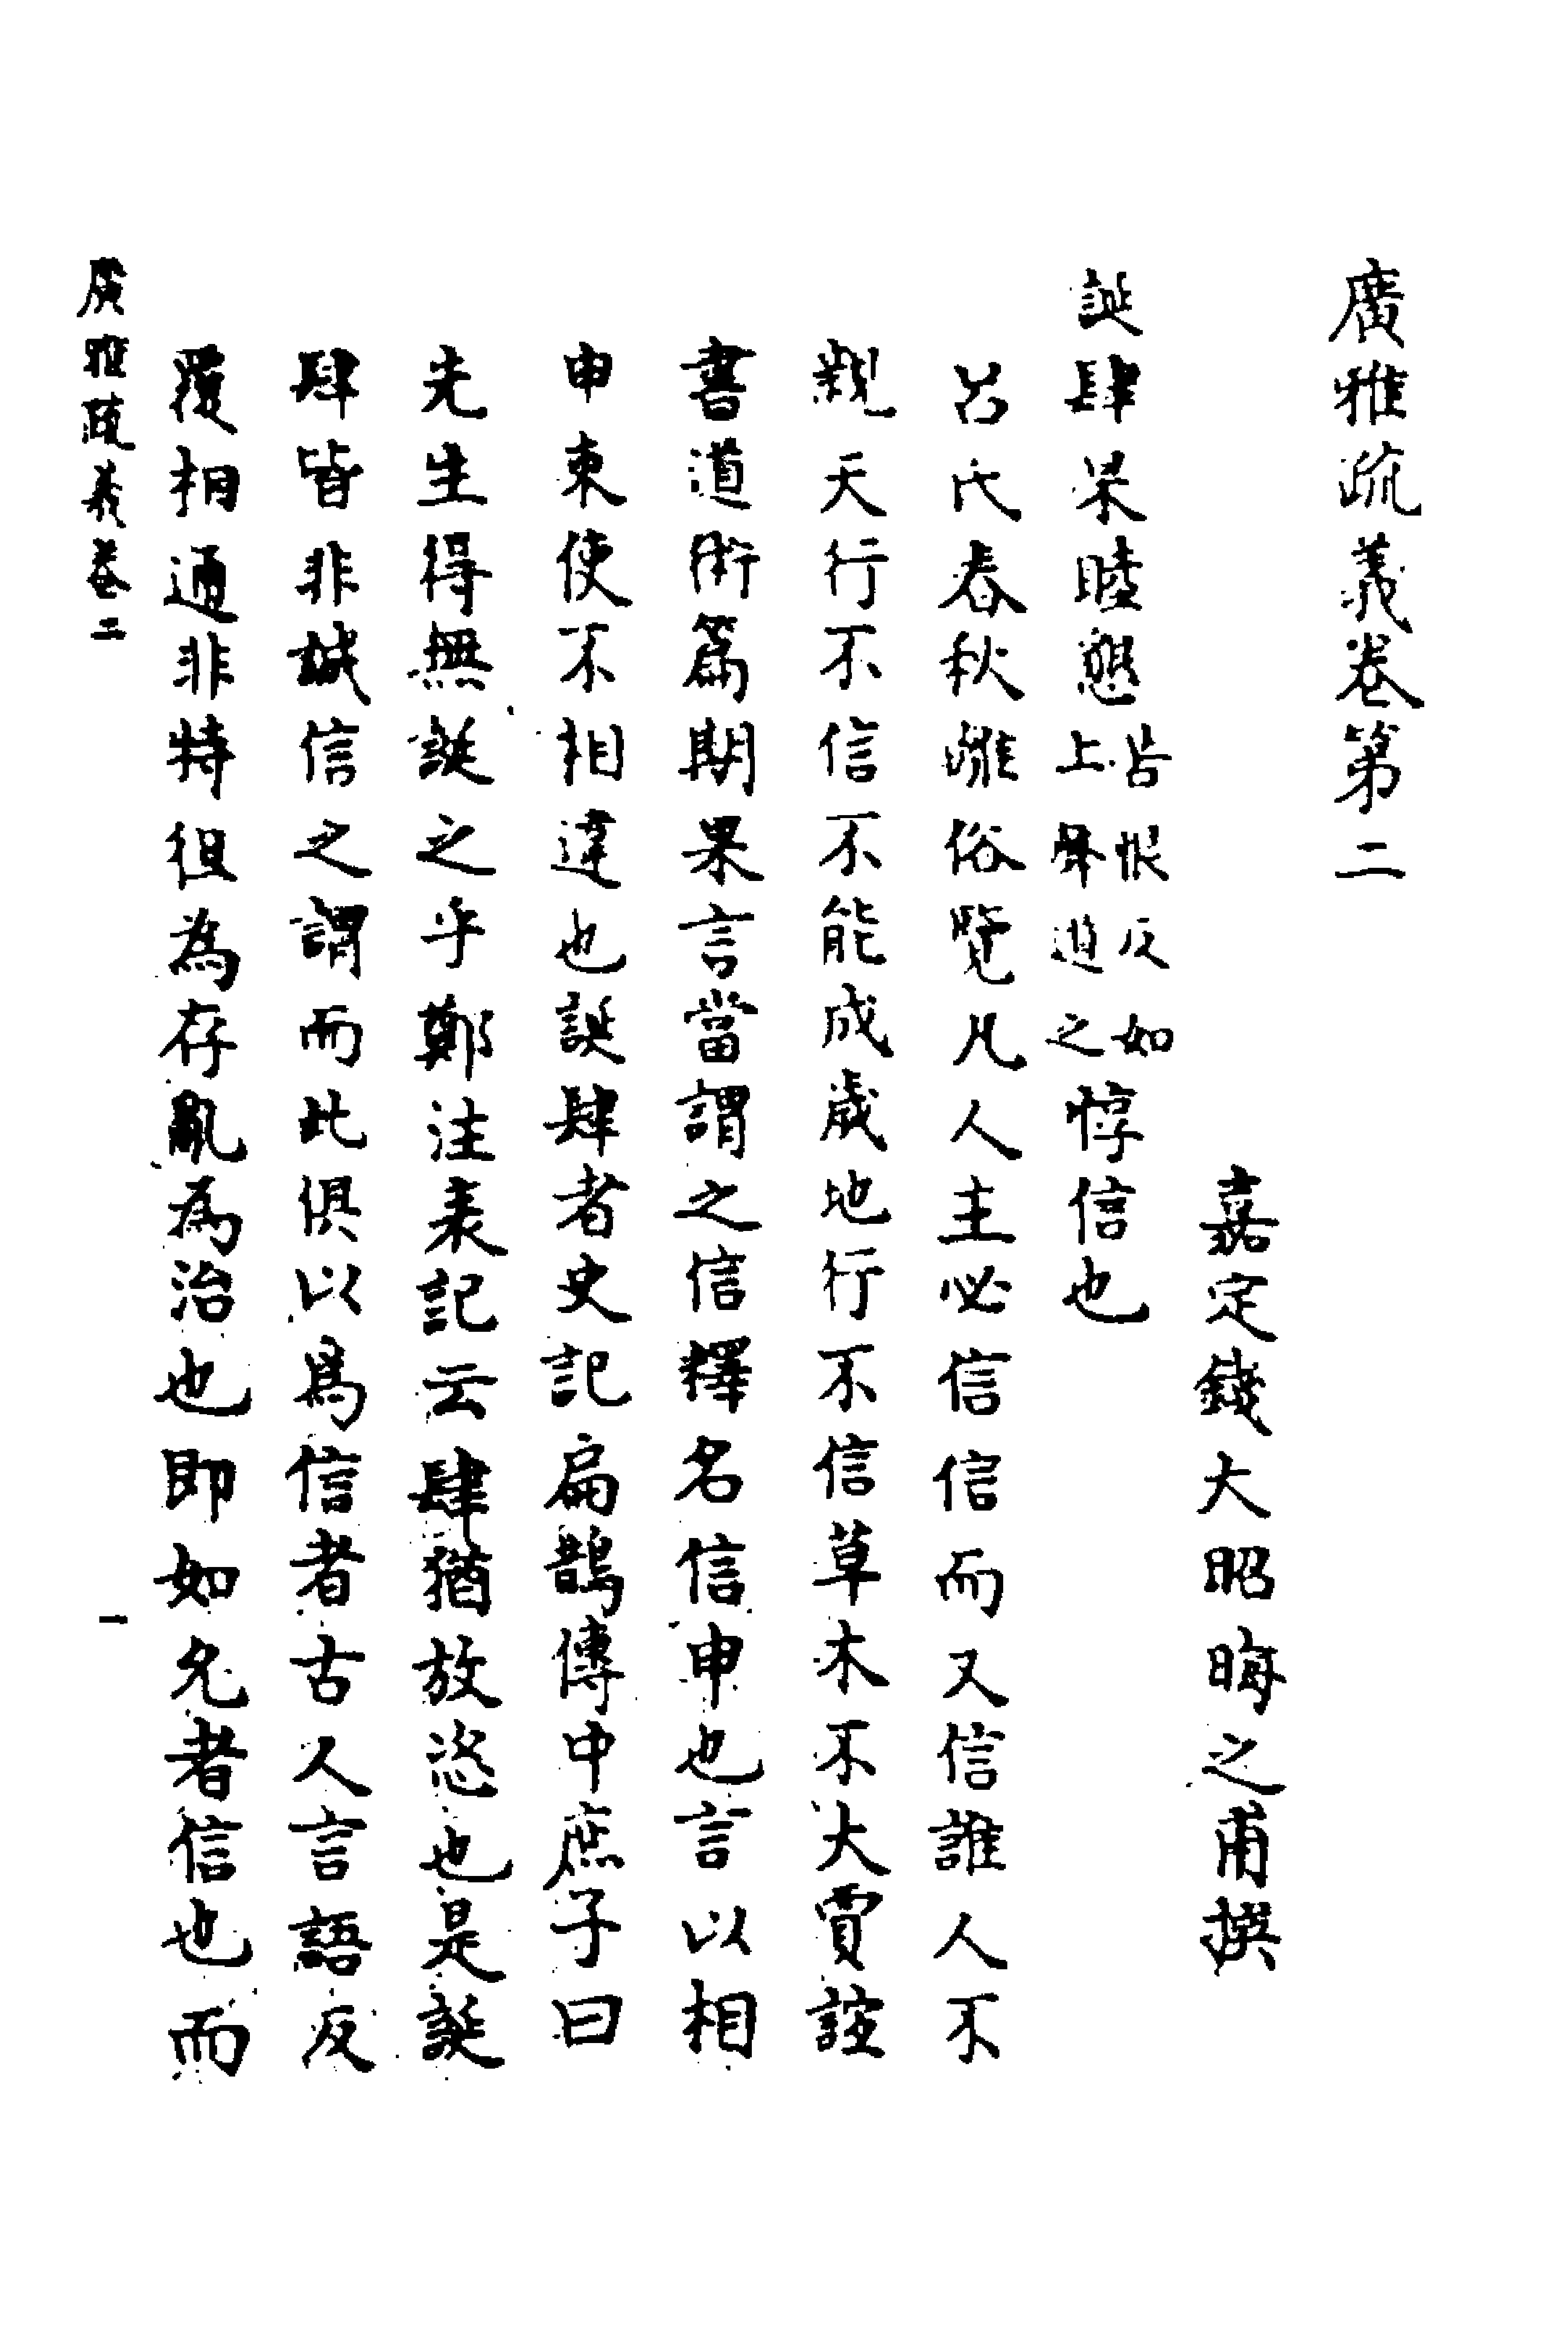 廣雅疏義卷第二
嘉定錢大昭晦之甫撰
誕肆杲睦懇苦恨反如上聲道之惇信也
呂氏春秋離俗覽凡人主必信信而又信誰人不
親天行不信不能成歲地行不信草木不大賈誼
書道術篇期果言當謂之信釋名信申也言以相
申束使不相違也誕肆者史記扁鵲傳中庶子曰
先生得無誕之乎鄭注表記云肆猶放恣也是誕
肆皆非誠信之謂而此俱以爲信者古人言語反
覆相通非特徂為存亂為治也即如允者信也而
廣雅疏義卷二
一